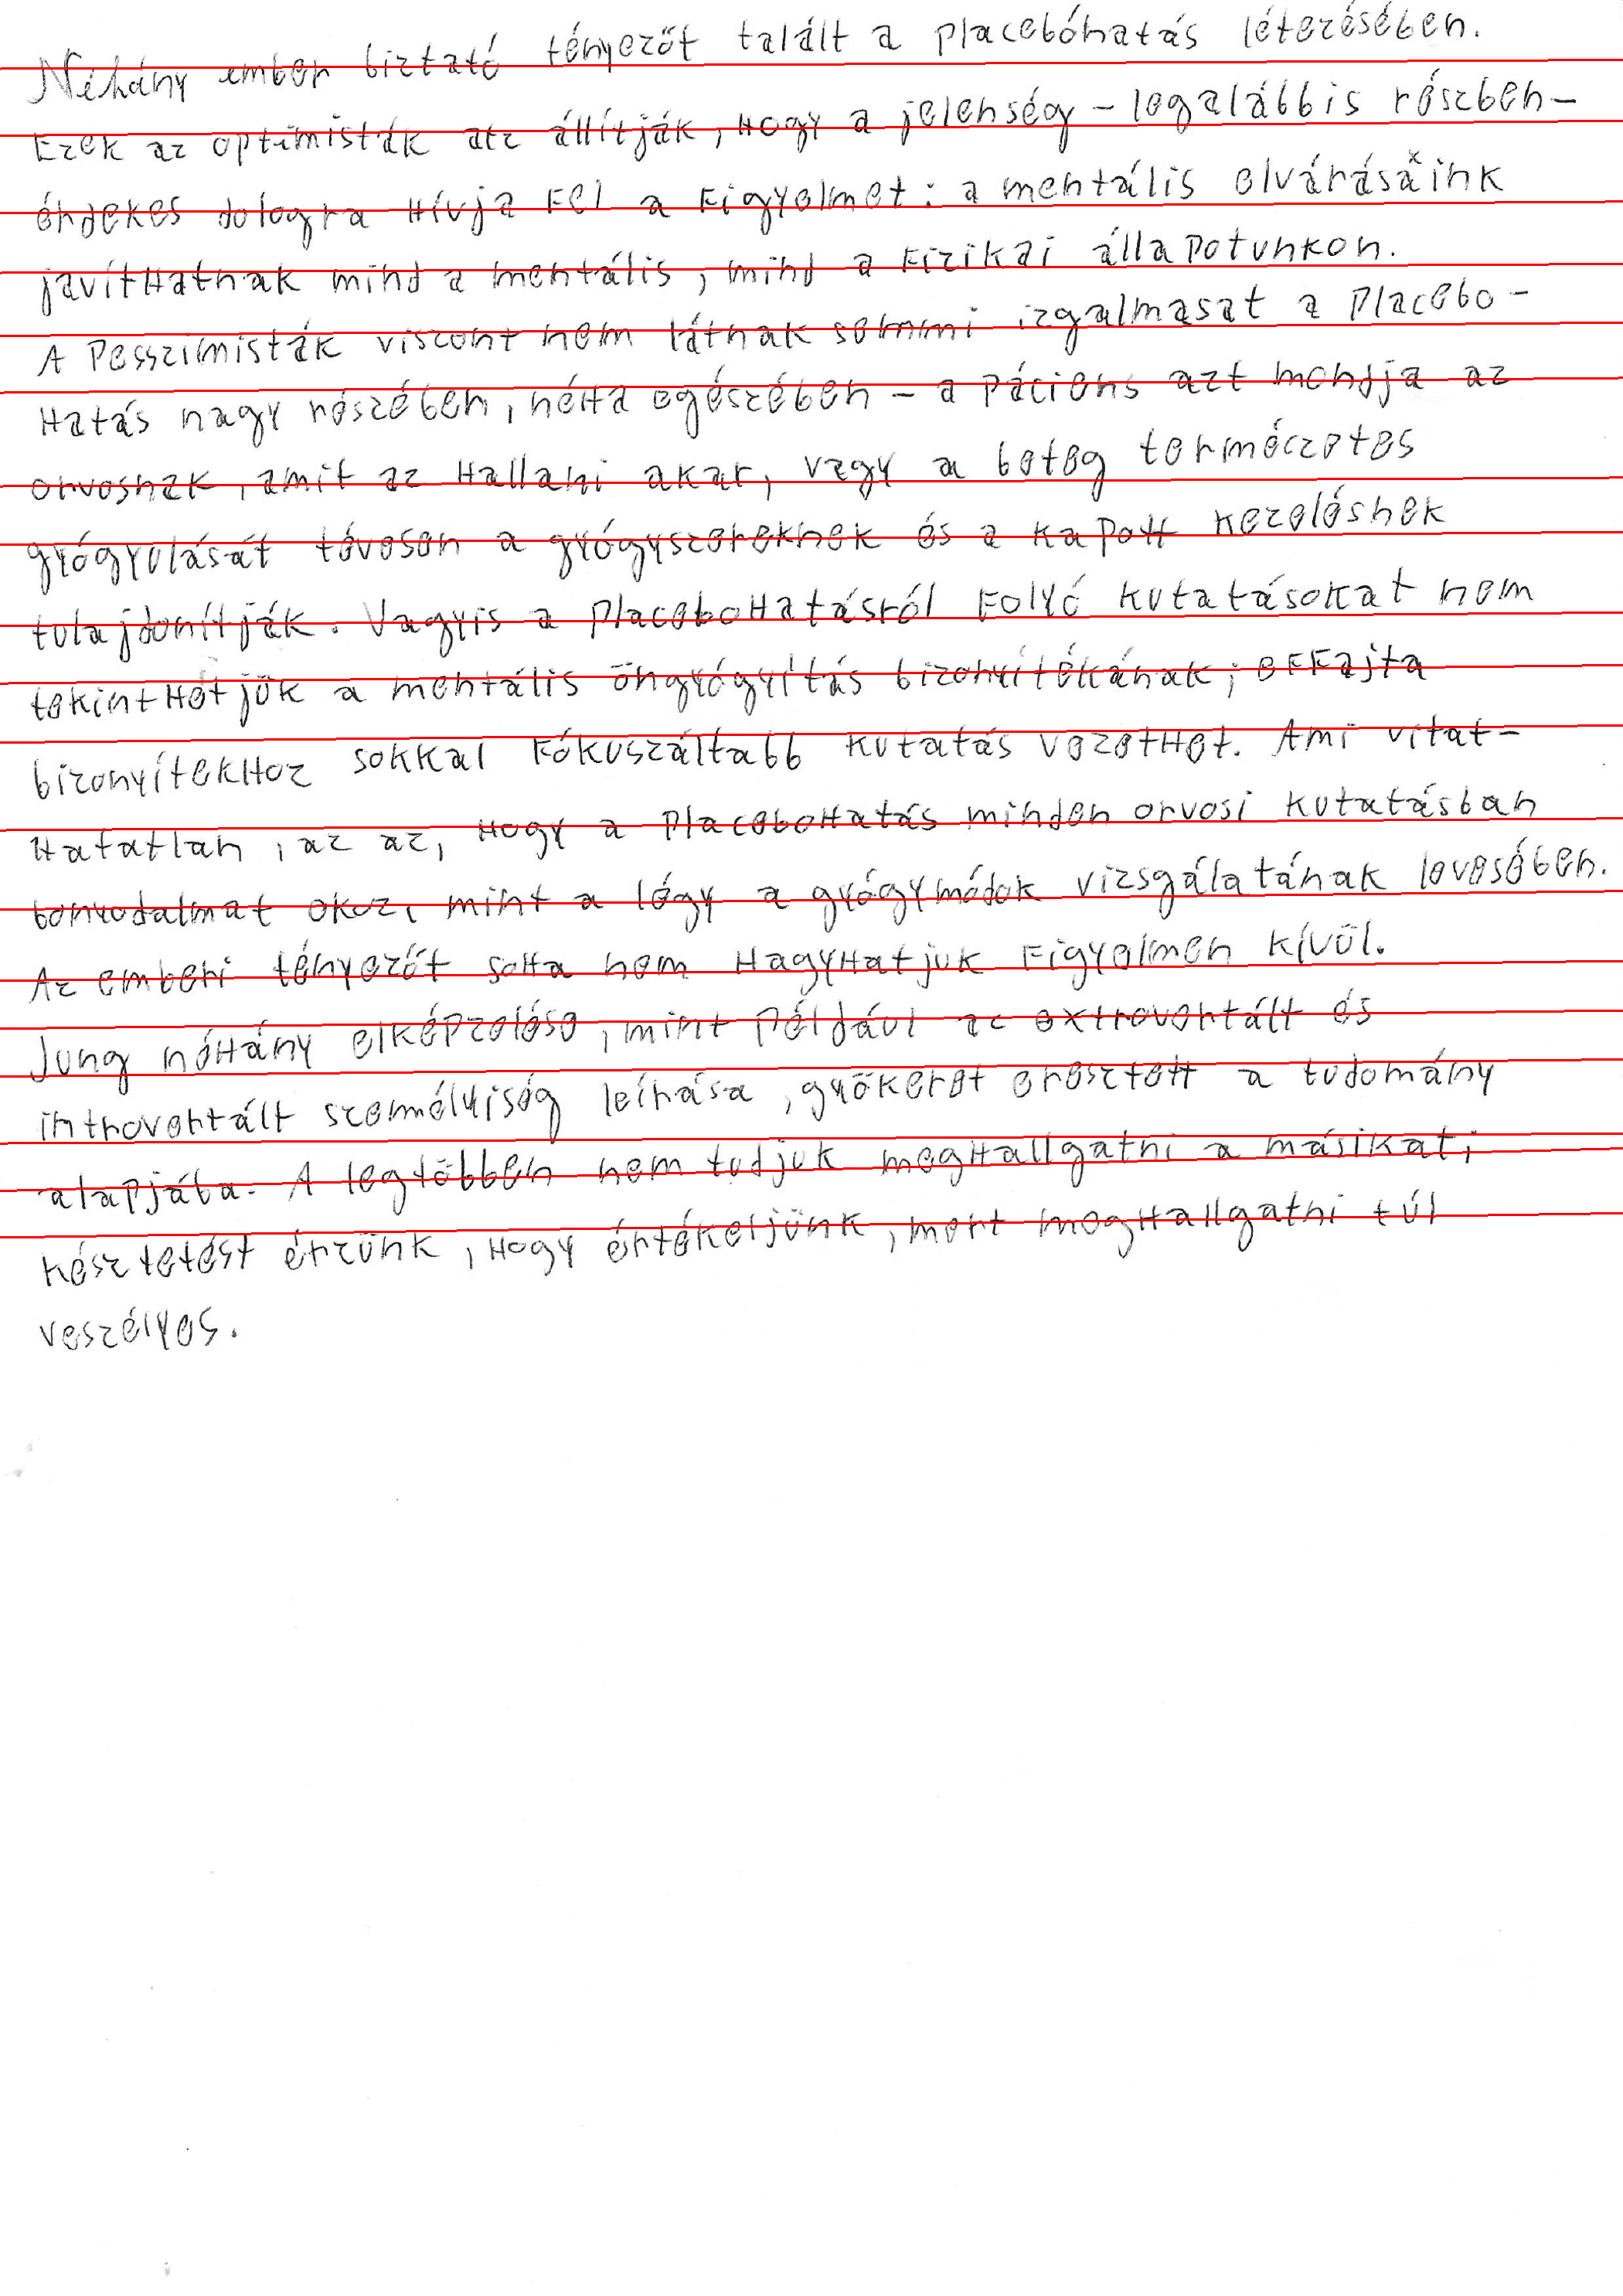 Néhány ember biztató tényezőt talált a placebóhatás létezésében.
Ezek az optimisták azt állítják, hogy a jelenség – legalábbis részben –
érdekes dologra hívja fel a figyelmet: a mentális elvárásáink
javíthatnak mind a mentális, mind a fizikai állapotunkon.
A pesszimisták viszont nem látnak semmi izgalmasat a placebo-
hatás nagy részében, néha egészében – a páciens azt mondja az
orvosnak, amit az hallani akar, vagy a beteg természetes
gyógyulását tévesen a gyógyszereknek és a kapott kezelésnek
tulajdonítják. Vagyis a placebohatásról folyó kutatásokat nem
tekinthetjük a mentális öngyógyítás bizonyítékának; effajta
bizonyítekhoz sokkal fókuszáltabb kutatás vezethet. Ami vitat-
hatatlan, az az, hogy a placebohatás minden orvosi kutatásban
bonyodalmat okoz, mint a légy a gyógymódok vizsgálatának levesében.
Az emberi tényezőt soha nem hagyhatjuk figyelmen kívül.
Jung néhány elképzelése, mint például az extrovertált és
introvertált személyiség leírása, gyökeret eresztett a tudomány
alapjába. A legtöbben nem tudjuk meghallgatni a másikat;
késztetést érzünk, hogy értékeljünk, mert meghallgatni túl
veszélyes.